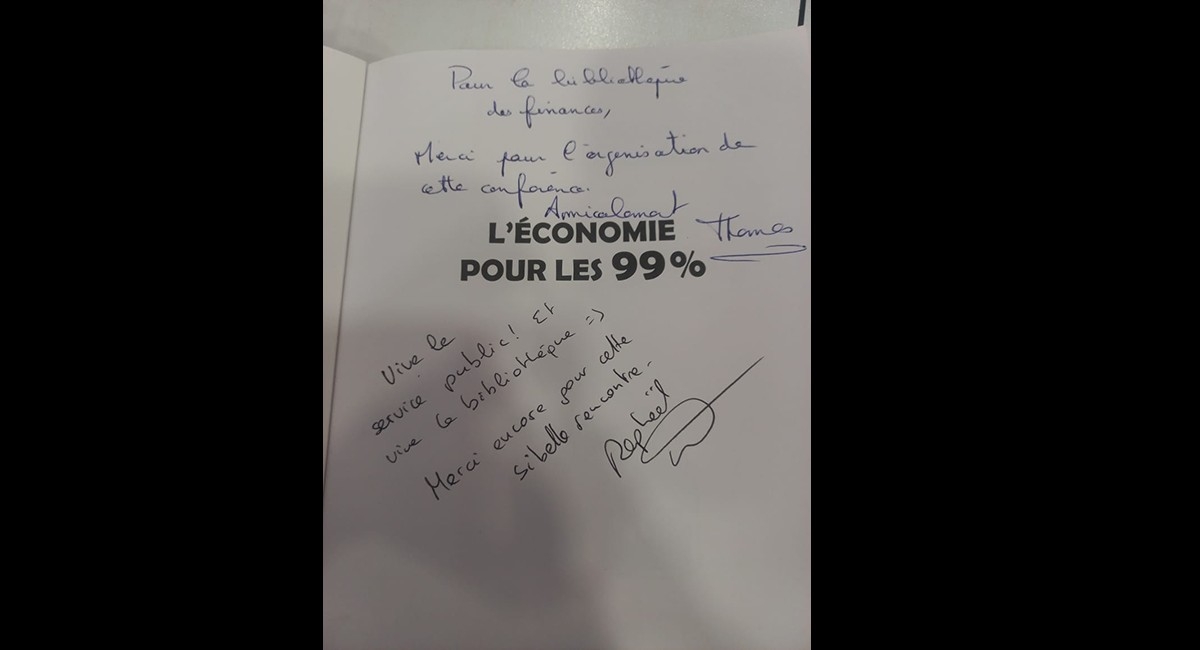 Pour la bibliothèque
des finances,
Merci pour l'organisation de
cette conférence.
Amicalement
Thomas
L'ÉCONOMIE
POUR LES 99%
Vive le
service public! Et
vive la bibliothèque =)
Merci encore pour cette
si belle rencontre.
Raphaël